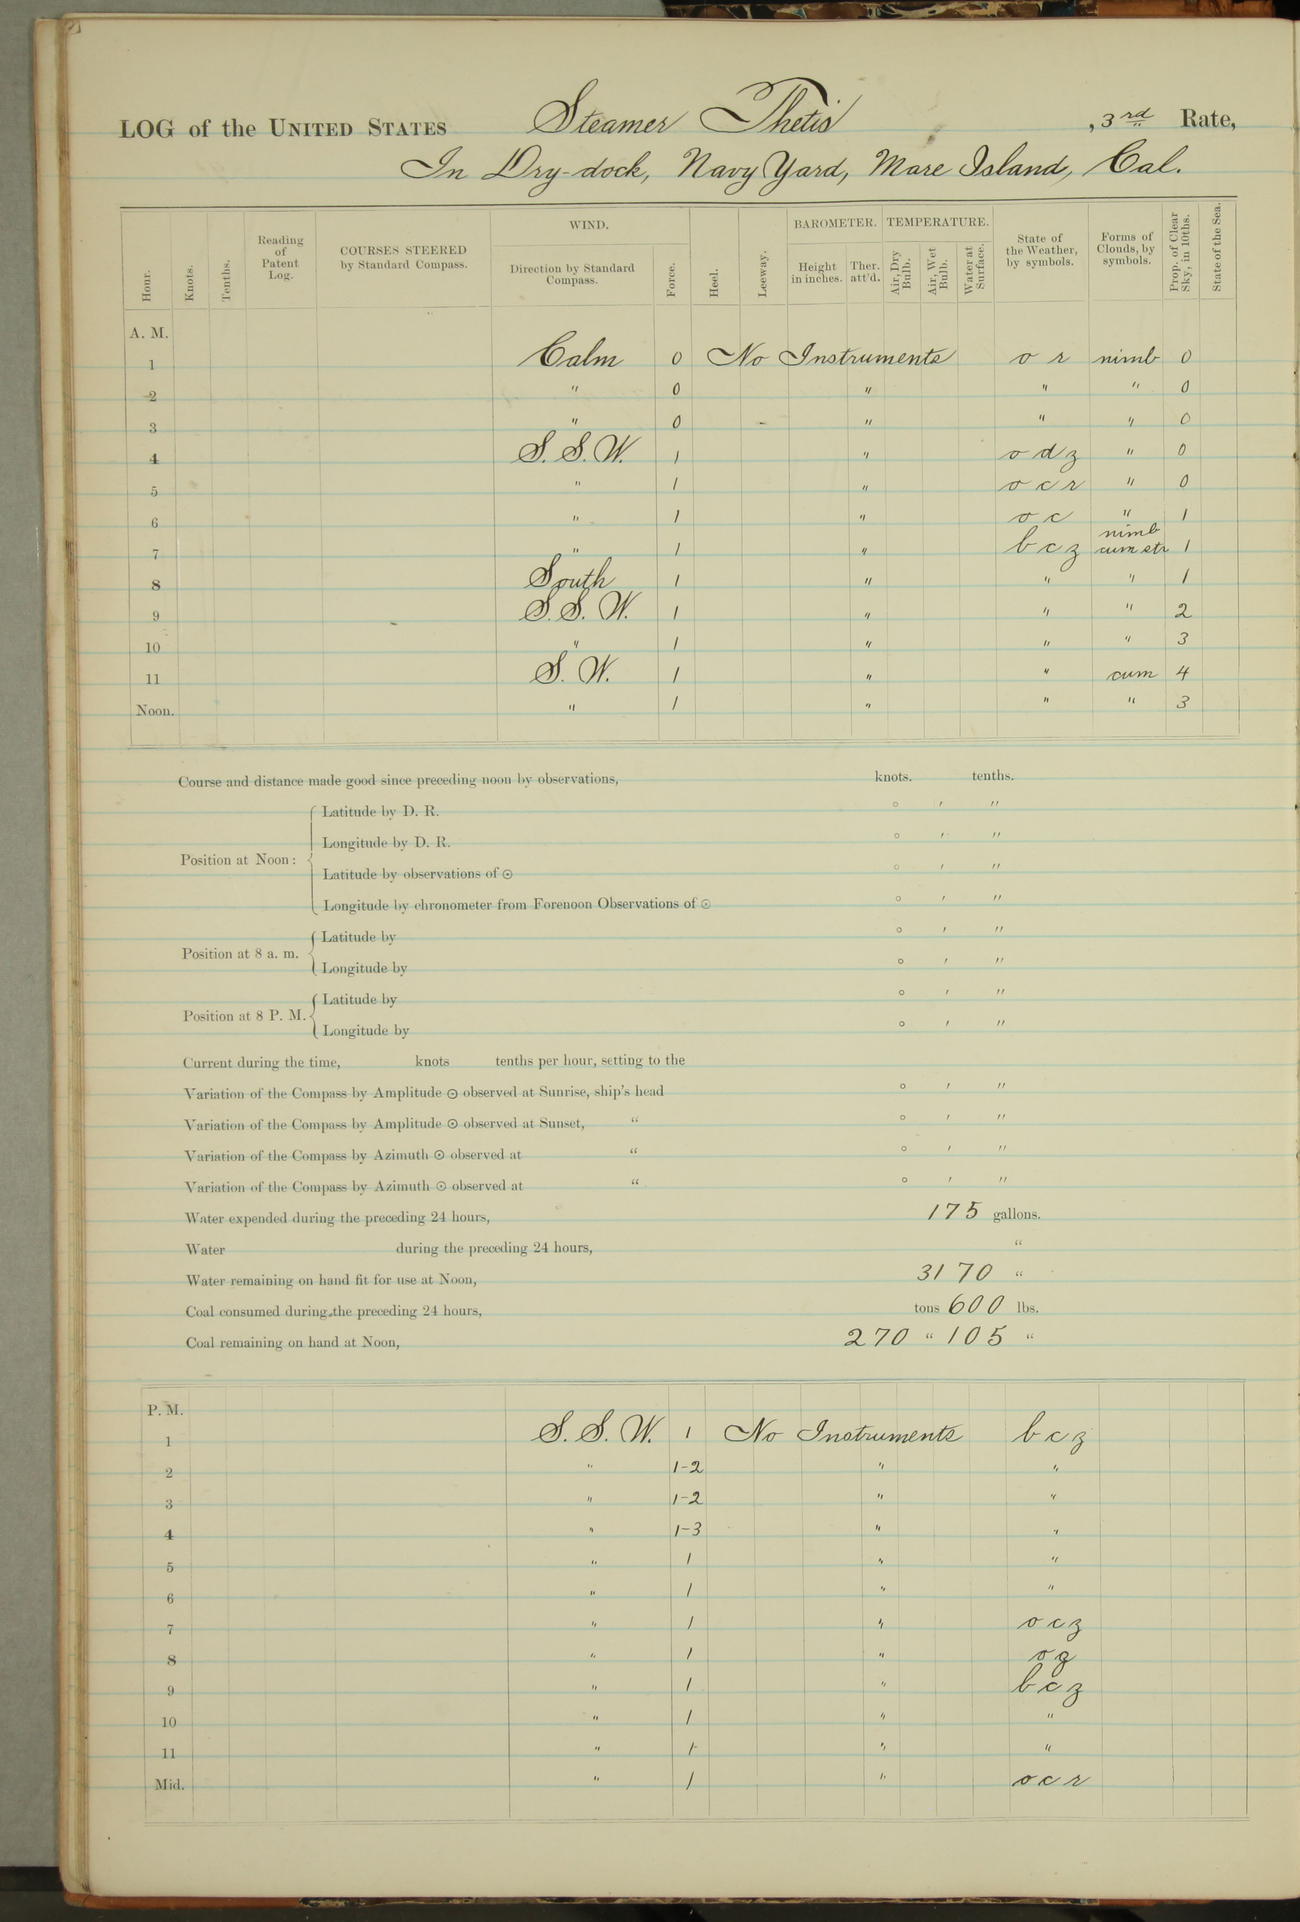 LOG of the UNITED STATES Steamer Thetis , 3rd Rate,
In Dry-dock, Navy Yard, Mare Island, Cal.
Hour. Knots. Tenths. Reading of Patent Log. COURSES STEERED by Standard Compass. WIND. Direction by Standard Compass. Force. Heel. Leeway. BAROMETER. Height in inches. Ther. att'd. TEMPERATURE. Air, Dry Bulb. Air, Wet Bulb. Water at Surface. State of the Weather, by symbols. Forms of Clouds, by symbols. Prop. of Clear Sky, in 10ths. State of the Sea.
A. M.
1 Calm 0 No Instruments o r nimb 0
2 " 0 " " " 0
3 " 0 - " " " 0
4 S. S. W. 1 " o d z " 0
5 " 1 " o c r " 0
6 " 1 " o c " 1
7 " 1 " b c z nimb cum str 1
8 South 1 " " " 1
9 S. S. W. 1 " " " 2
10 " 1 " " " 3
11 S. W. 1 " " cum 4
Noon. " 1 " " " 3
Course and distance made good since preceding noon by observations, knots. tenths.
Position at Noon: Latitude by D. R. ° ′ ″
Longitude by D. R. ° ′ ″
Latitude by observations of ⊙ ° ′ ″
Longitude by chronometer from Forenoon Observations of ⊙ ° ′ ″
Position at 8 a. m. Latitude by ° ′ ″
Longitude by ° ′ ″
Position at 8 P. M. Latitude by ° ′ ″
Longitude by ° ′ ″
Current during the time, knots tenths per hour, setting to the
Variation of the Compass by Amplitude ⊙ observed at Sunrise, ship's head ° ′ ″
Variation of the Compass by Amplitude ⊙ observed at Sunset, “ ° ′ ″
Variation of the Compass by Azimuth ⊙ observed at “ ° ′ ″
Variation of the Compass by Azimuth ⊙ observed at “ ° ′ ″
Water expended during the preceding 24 hours, 175 gallons.
Water during the preceding 24 hours, “
Water remaining on hand fit for use at Noon, 3170 “
Coal consumed during the preceding 24 hours, tons 600 lbs.
Coal remaining on hand at Noon, 270 “ 105 “
P. M.
1 S. S. W. 1 No Instruments b c z
2 " 1-2 " "
3 " 1-2 " "
4 " 1-3 " "
5 " 1 " "
6 " 1 " "
7 " 1 " o c z
8 " 1 " o z
9 " 1 " b c z
10 " 1 " "
11 " 1 " "
Mid. " 1 " o c r